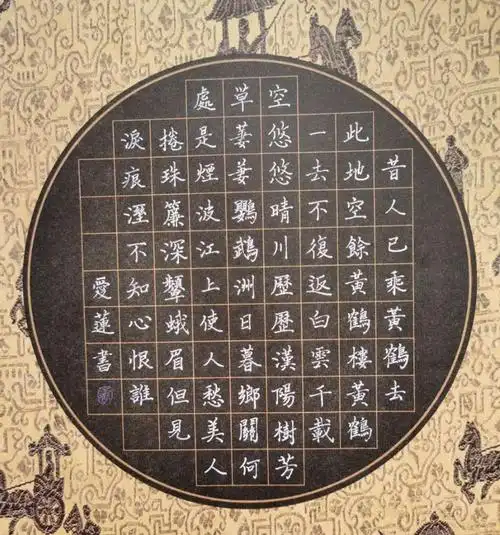 昔人已乘黃鶴去
此地空餘黃鶴樓黃鶴
一去不復返白雲千載
空悠悠晴川歷歷漢陽樹芳
草萋萋鸚鵡洲日暮鄉關何
處是煙波江上使人愁美人
捲珠簾深顰蛾眉但見
淚痕溼不知心恨誰
愛蓮書